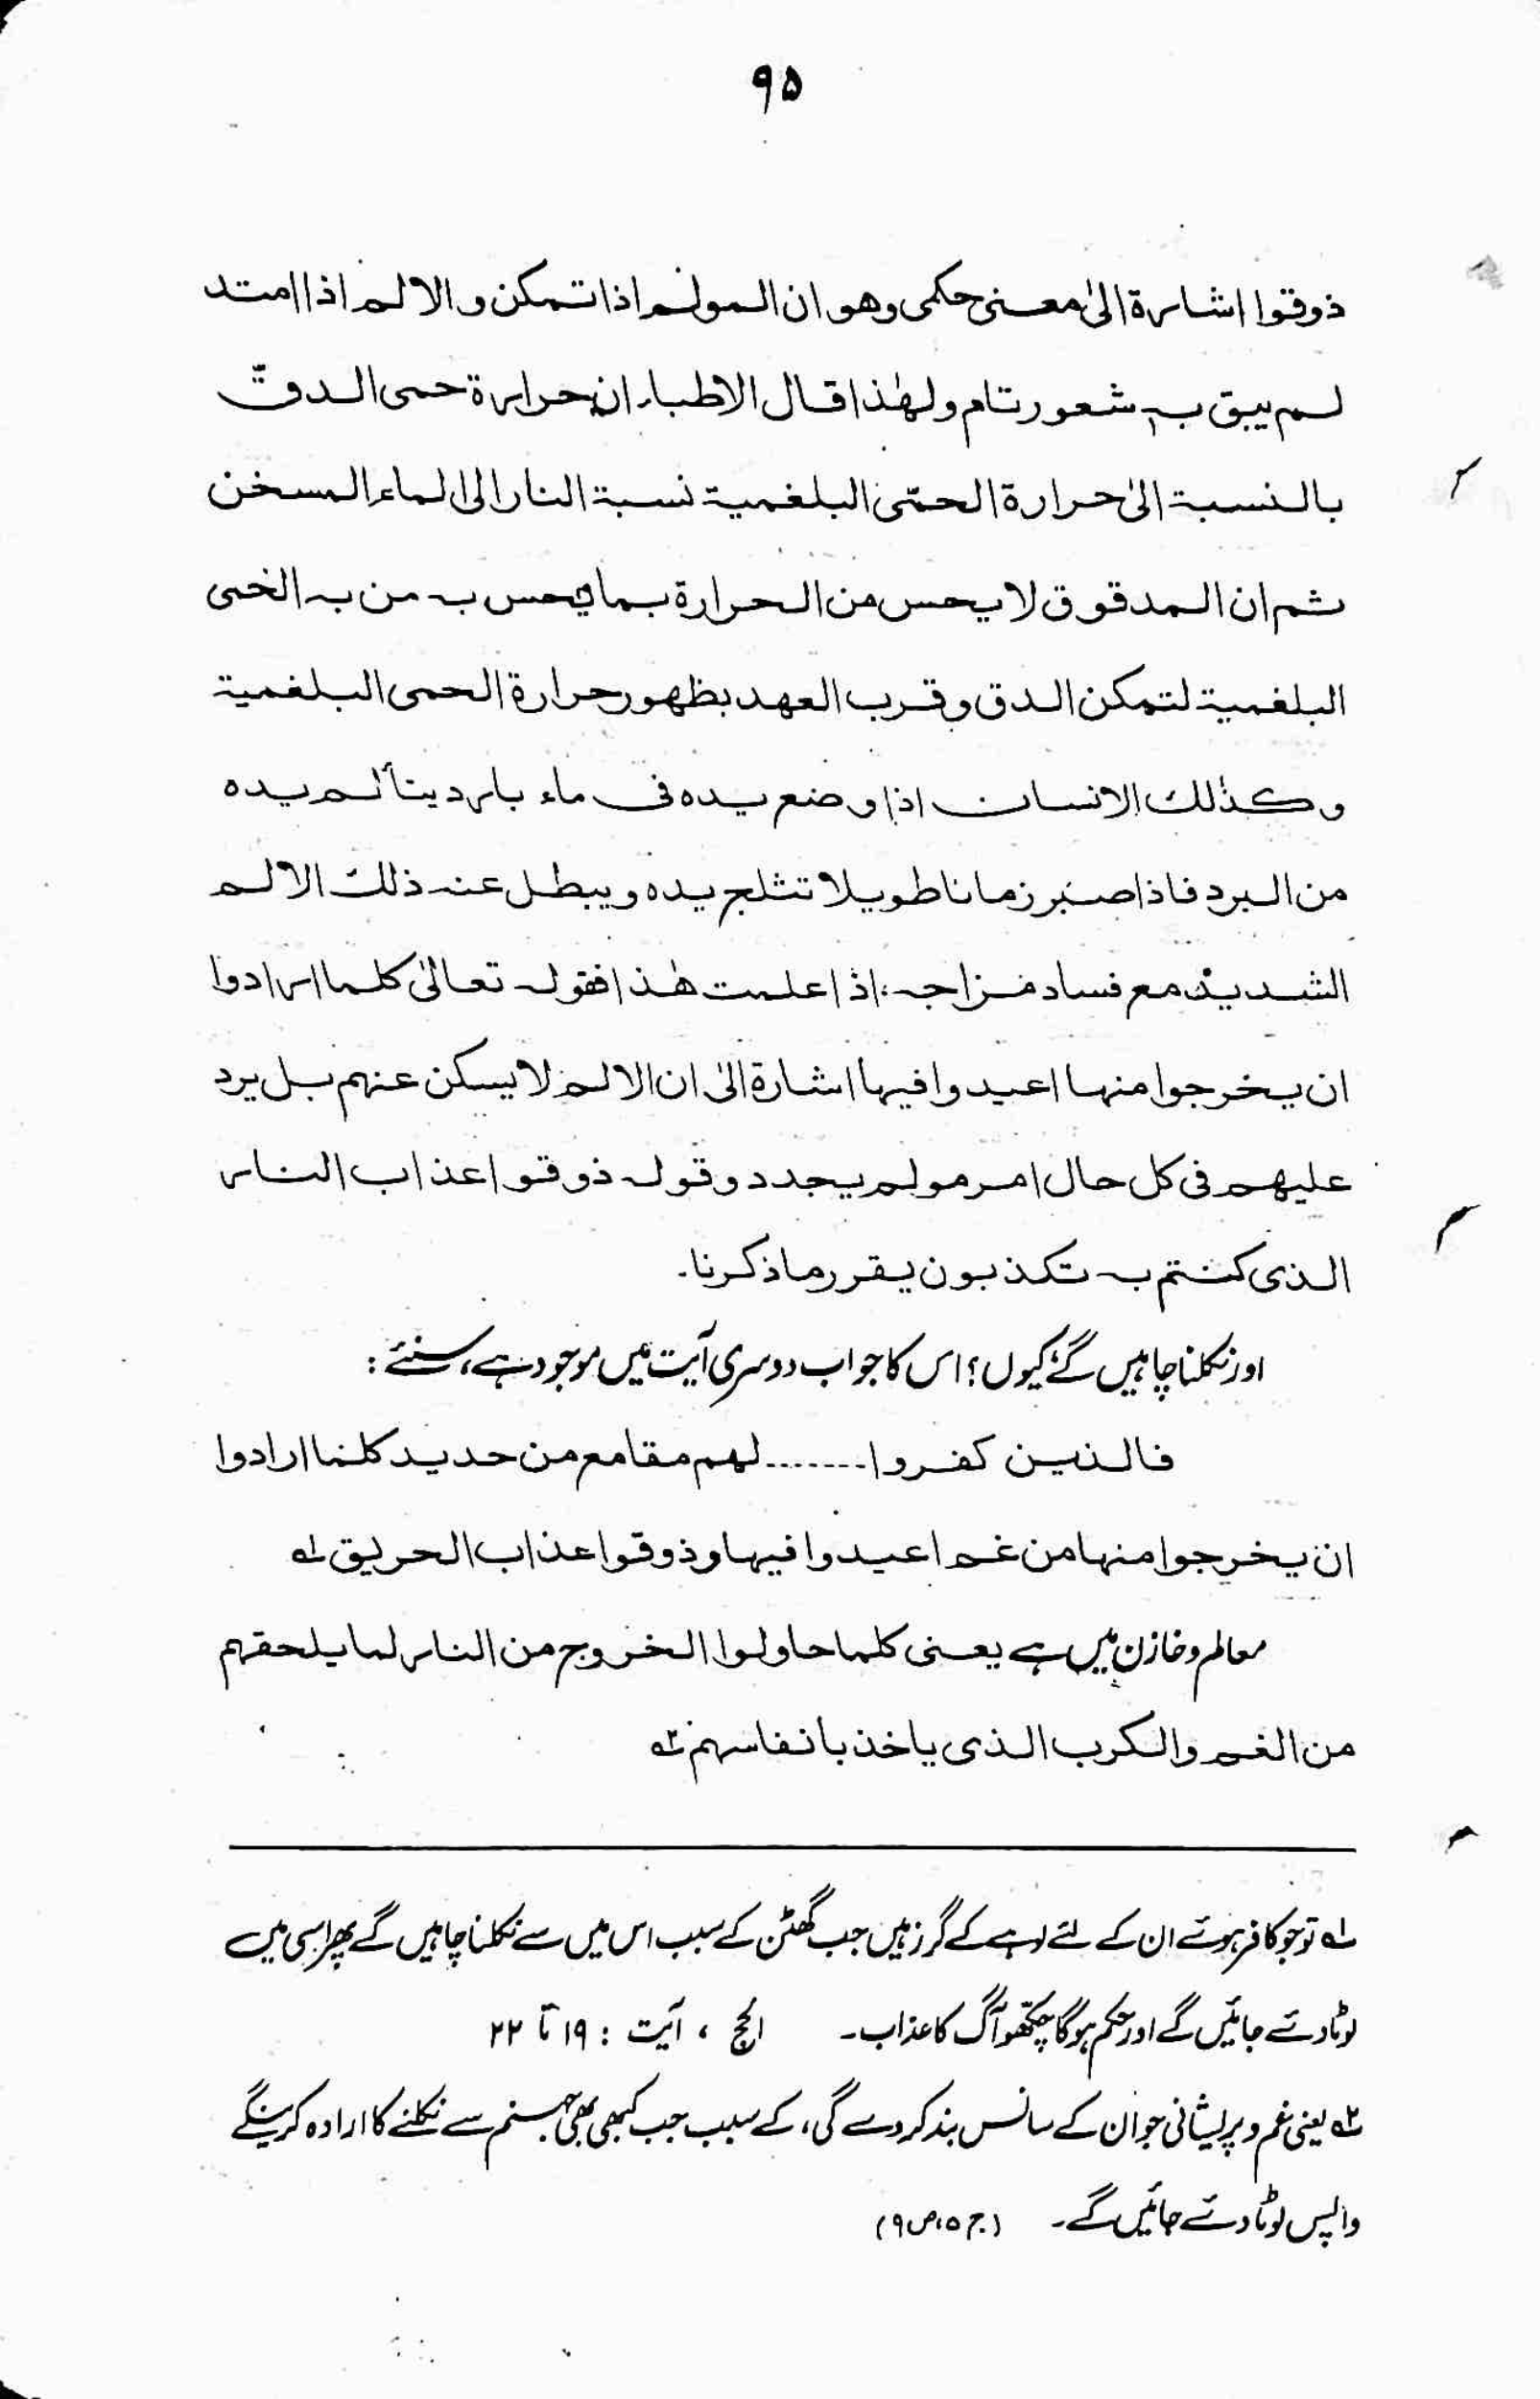 ۹۵
ذوقوا اشارة الیٰ معنی حکمی وهو ان المولم اذا تمکن و الالم اذا امتد
لم یبق بہ شعور تام ولهٰذا قال الاطباء ان حرارة حمی الدقّ
بالنسبة الیٰ حرارة الحمّی البلغمیة نسبة النار الی الماء المسخن
ثم ان المدقوق لا یحس من الحرارة بما یحس بہ من بہ الخمی
البلغمیة لتمکن الدق و قرب العهد بظهور حرارة الحمی البلغمیة
و کذٰلک الانسان اذا وضع یده فی ماء بارد یتألم یده
من البرد فاذا صبر زمانا طویلا تثلج یده و یبطل عنہ ذلک الالم
الشدید مع فساد مزاجہ، اذا علمت هٰذا فقولہ تعالیٰ کلما ارادوا
ان یخرجوا منها اعیدوا فیها اشارة الیٰ ان الالم لا یسکن عنهم بل یرد
علیهم فی کل حال امر مولم یجدد و قولہ ذوقوا عذاب النار
الذی کنتم بہ تکذبون یقرر ما ذکرنا۔
اور نکلنا چاہیں گے، کیوں؟ اس کا جواب دوسری آیت میں موجود ہے، سنئے :
فالذین کفروا ....... لهم مقامع من حدید کلما ارادوا
ان یخرجوا منها من غم اعیدوا فیها و ذوقوا عذاب الحریق ؎۱
معالم و خازن میں ہے یعنی کلما حاولوا الخروج من النار لما یلحقهم
من الغم والکرب الذی یاخذ بانفاسهم ؎۲
؎۱ تو جو کافر ہوئے ان کے لئے لوہے کے گرز ہیں جب گھٹن کے سبب اس میں سے نکلنا چاہیں گے پھر اسی میں
لوٹا دئے جائیں گے اور حکم ہوگا چکھو آگ کا عذاب۔ الحج ، آیت : ۱۹ تا ۲۲
؎۲ یعنی غم و پریشانی جو ان کے سانس بند کر دے گی، کے سبب جب کبھی بھی جہنم سے نکلنے کا ارادہ کرینگے
واپس لوٹا دئے جائیں گے۔ (ج ۵، ص ۹)